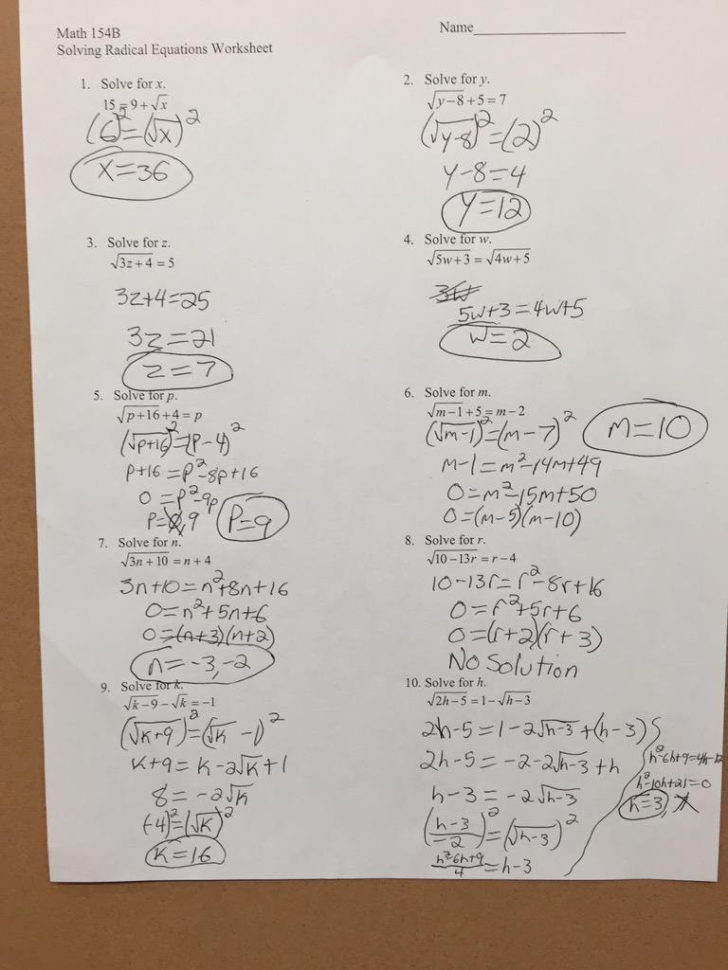 Math 154B
Name
Solving Radical Equations Worksheet
1. Solve for x.
15 = 9 + √x
(6)² = (√x)²
x = 36
2. Solve for y.
√(y-8) + 5 = 7
(√(y-8))² = (2)²
y-8 = 4
y = 12
3. Solve for z.
√(3z+4) = 5
3z+4 = 25
3z = 21
z = 7
4. Solve for w.
√(5w+3) = √(4w+5)
5w+3 = 4w+5
w = 2
5. Solve for p.
√(p+16) + 4 = p
(√(p+16))² = (p-4)²
p+16 = p²-8p+16
0 = p²-9p
p = 0, 9
p = 9
6. Solve for m.
√(m-1) + 5 = m-2
(√(m-1))² = (m-7)²
m = 10
m-1 = m²-14m+49
0 = m²-15m+50
0 = (m-5)(m-10)
7. Solve for n.
√(3n+10) = n+4
3n+10 = n²+8n+16
0 = n²+5n+6
0 = (n+3)(n+2)
n = -3, -2
8. Solve for r.
√(10-13r) = r-4
10-13r = r²-8r+16
0 = r²+5r+6
0 = (r+2)(r+3)
No Solution
9. Solve for k.
√(k-9) - √k = -1
(√(k+9))² = (√k -1)²
k+9 = k-2√k+1
8 = -2√k
(-4)² = (√k)²
k = 16
10. Solve for h.
√(2h-5) = 1-√(h-3)
2h-5 = 1-2√(h-3) + (h-3)
2h-5 = -2-2√(h-3) + h
h-3 = -2√(h-3)
((h-3)/-2)² = (√(h-3))²
(h²-6h+9)/4 = h-3
h²-6h+9 = 4h-12
h²-10h+21 = 0
h = 3,